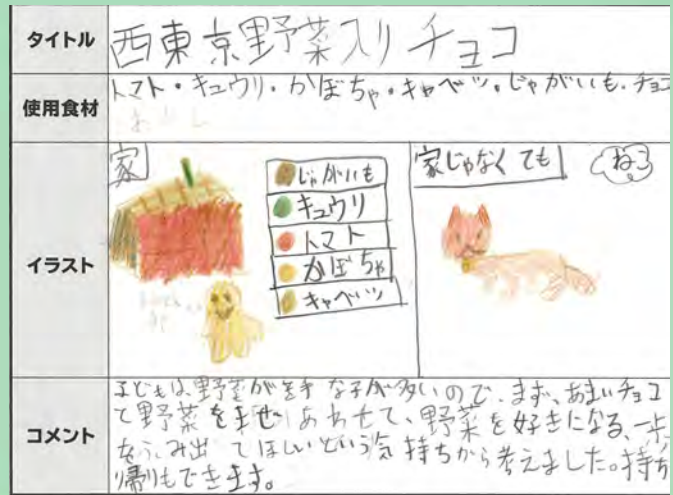 タイトル
西東京野菜入りチョコ
使用食材
トマト・キュウリ・かぼちゃ・キャベツ・じゃがいも・チョコ
イラスト
家
じゃがいも
キュウリ
トマト
かぼちゃ
キャベツ
家じゃなくても
ねこ
コメント
子どもは、野菜が苦手な子が多いので、まず、あまいチョコ
と野菜を混ぜあわせて、野菜を好きになる、一歩
をふみ出してほしいという気持ちから考えました。持ち
帰りもできます。